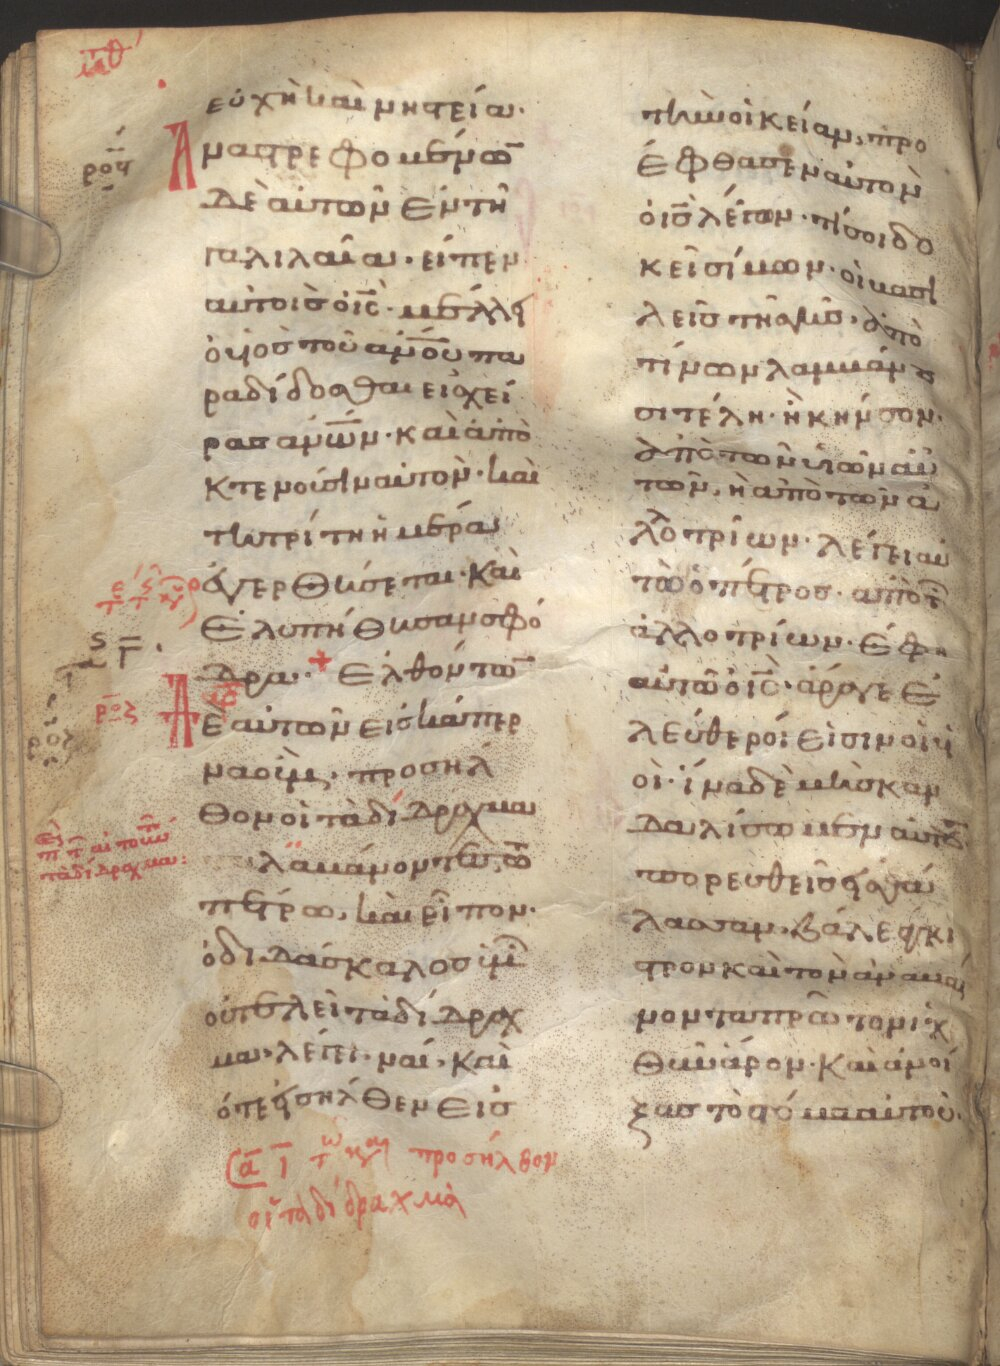 μθ
ευχὴ καὶ νηστεία·
ροϛ
Αναστρεφομένων
δὲ αὐτῶν ἐν τῆ
γαλιλαία· εἶπεν
αὐτοῖς ὁ ις̅· μέλλει
ὁ υἱὸς τοῦ ἀνο̅υ πα
ραδίδοσθαι εἰς χεῖ
ρας ἀνω̅ν· καὶ ἀπο
κτενοῦσιν αὐτὸν· καὶ
τῆ τρίτη ἡμέρα
ἐγερθήσεται· καὶ
ἐλυπήθησαν σφό
δρα· + Ἐλθόντων
ροζ
δὲ αὐτῶν εἰς καπερ
ναοὺμ· προσῆλ
θον οἱ τὰ δίδραχμα
λαμβάνοντες τῶ
πέτρω, καὶ εἶπον·
ὁ διδάσκαλος ὑμῶν
οὐ τελεῖ τὰ δίδραχ
μα· λέγει· ναί· καὶ
ὅτε εἰσῆλθεν εἰς
τὴν οἰκείαν, προ
έφθασεν αὐτὸν
ὁ ις̅ λέγων· τί σοι δο
κεῖ σίμων· οἱ βασι
λεῖς τῆς γῆς· ἀπὸ
τίνων λαμβάνου
σι τέλη· ἢ κῆνσον·
ἀπὸ τῶν υἱῶν αὐ
τῶν, ἢ ἀπὸ τῶν ἀ
λλοτρίων· λέγει αὐ
τῶ ὁ πέτρος· ἀπὸ τῶν
ἀλλοτρίων· ἔφη
αὐτῶ ὁ ις̅· ἄραγε ἐ
λεύθεροί εἰσιν οἱ υἱ
οί· ἵνα δὲ μὴ σκαν
δαλίσωμεν αὐτοὺς
πορευθεὶς εἰς θά
λασσαν· βάλε ἄγκι
στρον καὶ τὸν ἀναβάν
τα πρῶτον ἰχ
θῦν ἆρον· καὶ ἀνοί
ξας τὸ στόμα αὐτοῦ·
προσήλθον
οἱ τὰ δίδραχμα